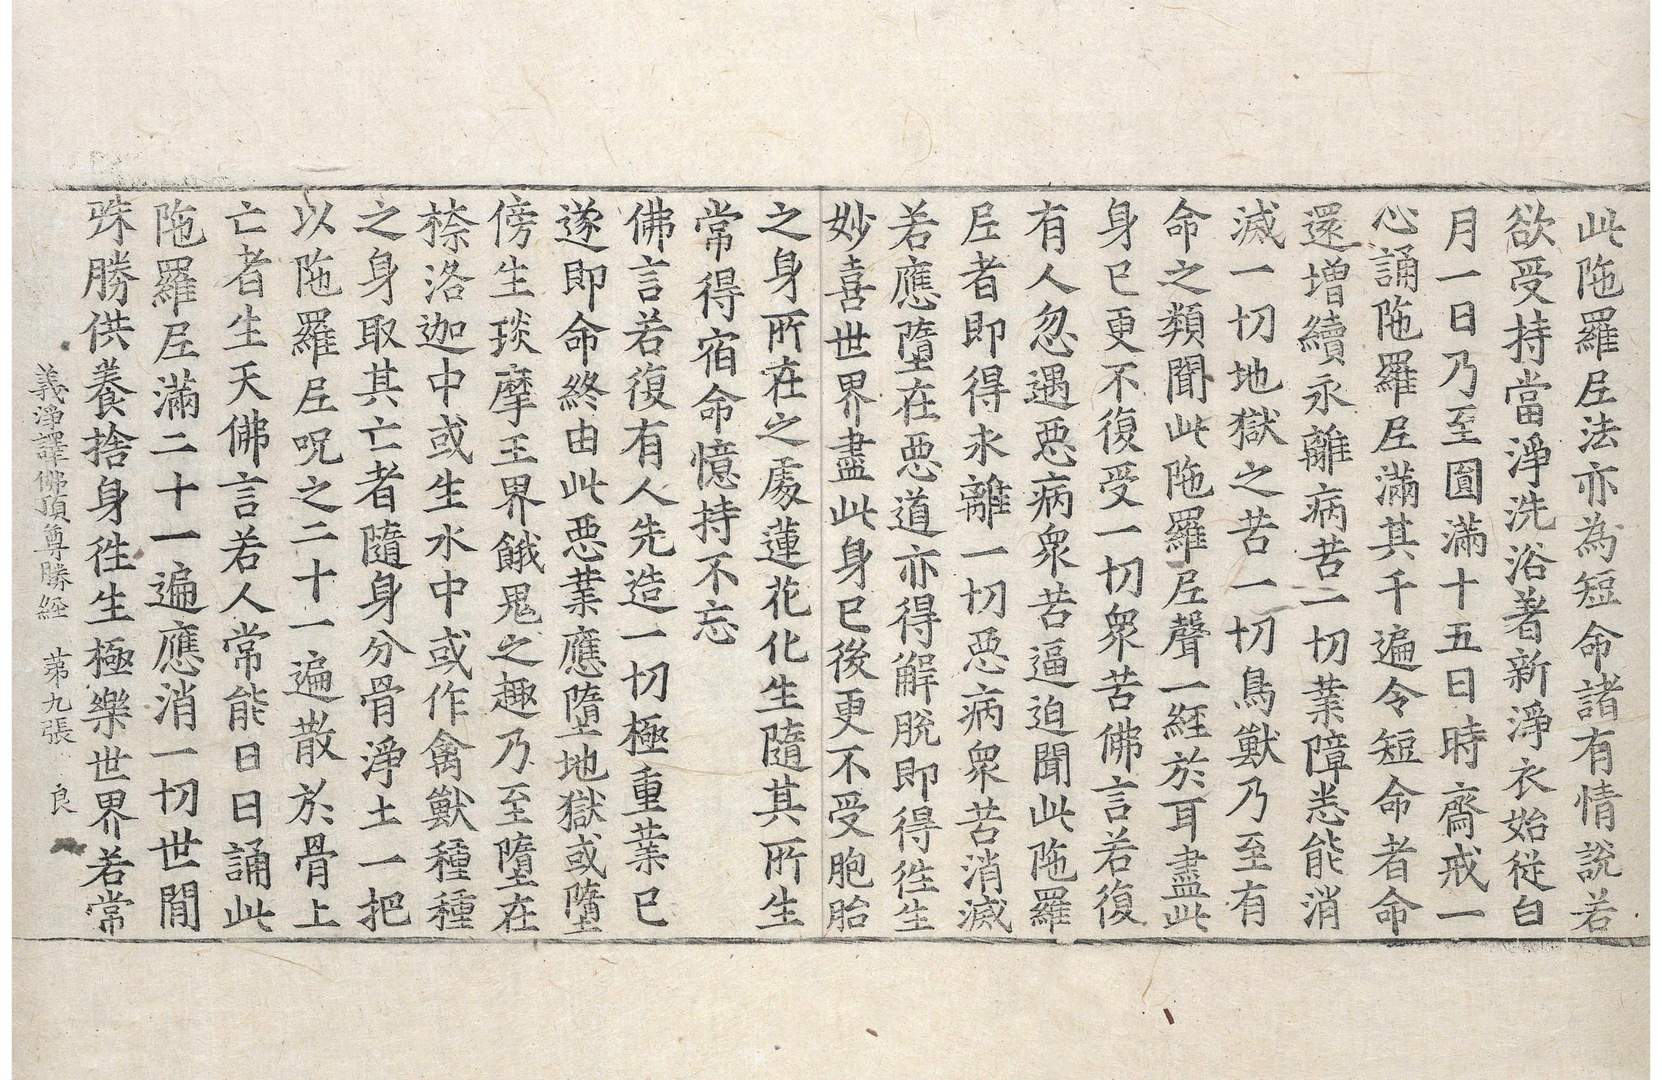 此陁羅𡰱法亦為短命諸有情說若
欲受持當淨洗浴著新淨衣始從白
月一日乃至圓滿十五日時齋戒一
心誦陁羅𡰱滿其千遍令短命者命
還增續永離病苦一切業障悉能消
滅一切地獄之苦一切鳥獸乃至有
命之類聞此陁羅𡰱聲一經於耳盡此
身已更不復受一切衆苦佛言若復
有人忽遇惡病衆苦逼迫聞此陁羅
𡰱者即得永離一切惡病衆苦消滅
若應墮在惡道亦得解脫即得徃生
妙喜世界盡此身已後更不受胞胎
之身所在之處蓮花化生隨其所生
常得宿命憶持不忘
佛言若復有人先造一切極重業已
遂即命終由此惡業應墮地獄或墮
傍生琰摩王界餓鬼之趣乃至墮在
㮈洛迦中或生水中或作禽獸種種
之身取其亡者隨身分骨淨土一把
以陁羅𡰱呪之二十一遍散於骨上
亡者生天佛言若人常能日日誦此
陁羅𡰱滿二十一遍應消一切世間
殊勝供養捨身徃生極樂世界若常
義淨譯佛頂尊勝經 苐九張 良